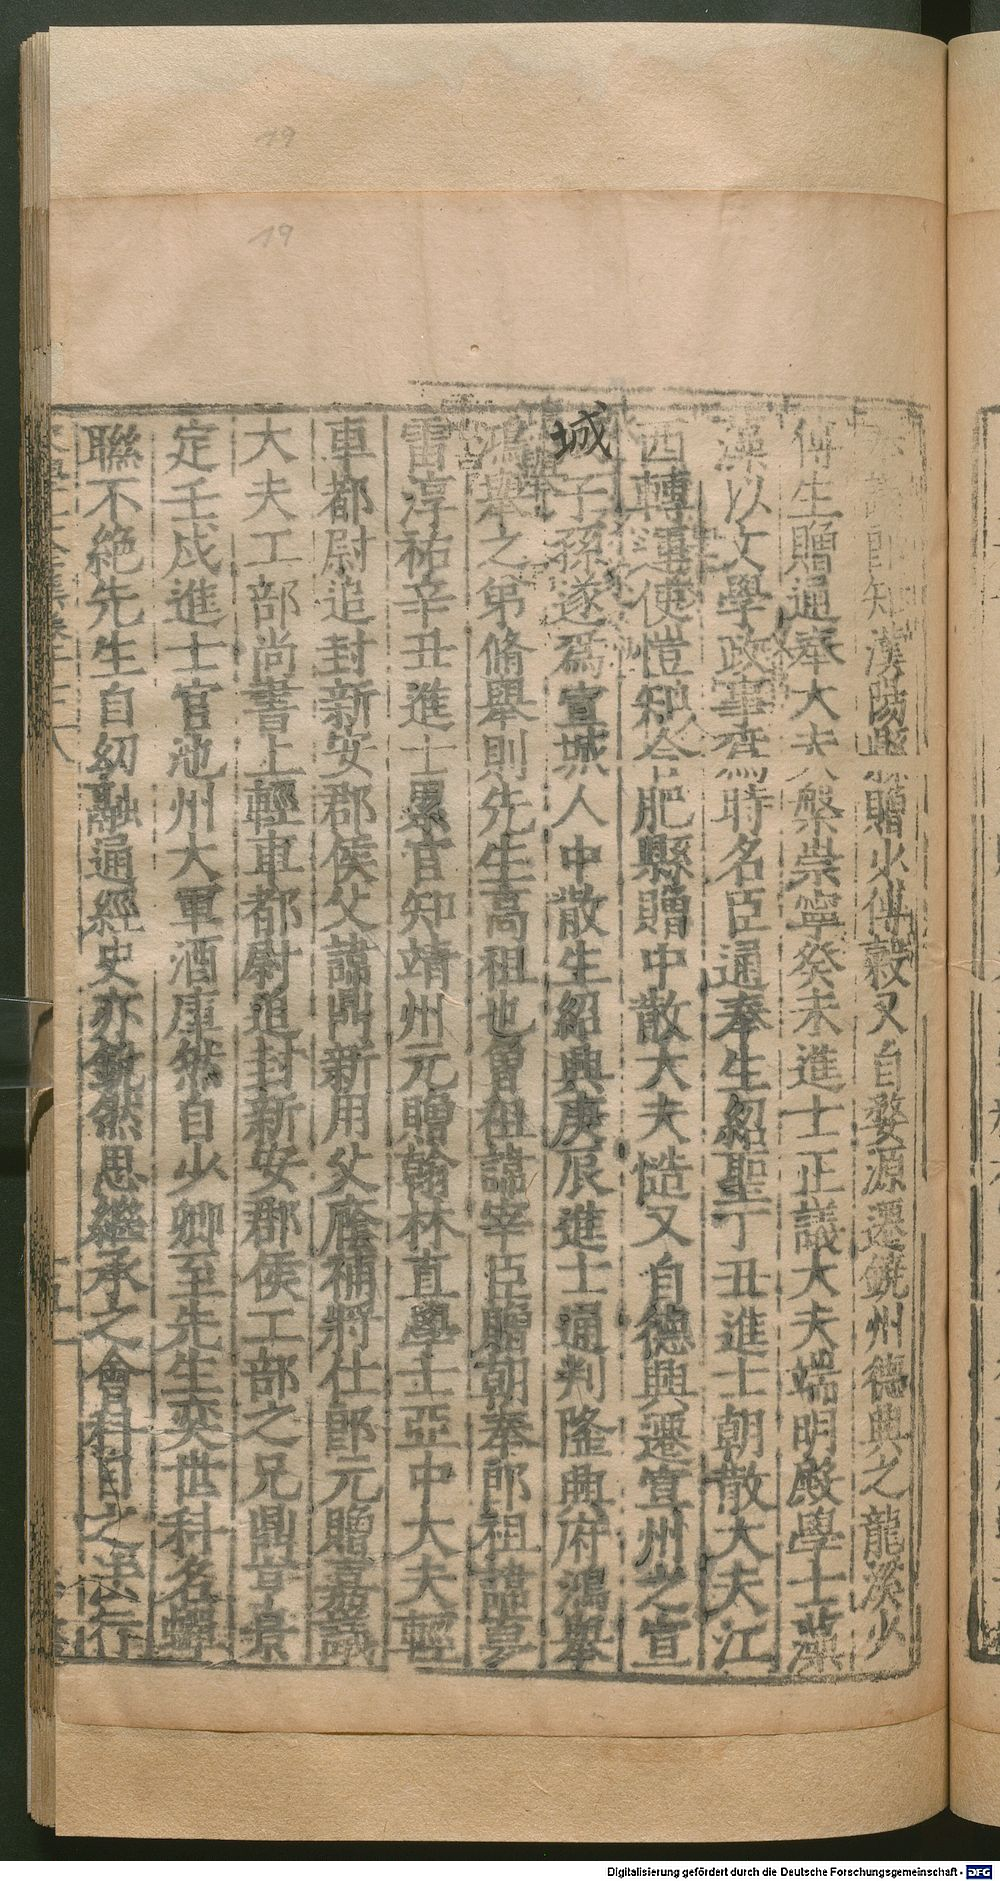 19
19
知漢陽縣贈少傅糓又自婺源遷饒州德興之龍溪少
傅生贈通奉大夫槃崇寧癸未進士正議大夫端明殿學士藻
藻以文學政事爲時名臣通奉生紹聖丁丑進士朝散大夫江
西轉運使愷知合肥縣贈中散大夫愭又自德興遷宣州之宣
城子孫遂爲宣城人中散生紹興庚辰進士通判隆興府鴻舉
鴻舉之弟脩舉則先生高祖也曾祖諱宰臣贈朝奉郎祖諱夢
雷淳祐辛丑進士累官知靖州元贈翰林直學士亞中大夫輕
車都尉追封新安郡侯父諱鼎新用父廕補將仕郎元贈嘉議
大夫工部尚書上輕車都尉追封新安郡侯工部之兄鼎亨景
定壬戌進士官池州大軍酒庫然自少卿至先生奕世科名蟬
聯不絶先生自幼融通經史亦銳然思繼承之會科目之法行
Digitalisierung gefördert durch die Deutsche Forschungsgemeinschaft - DFG